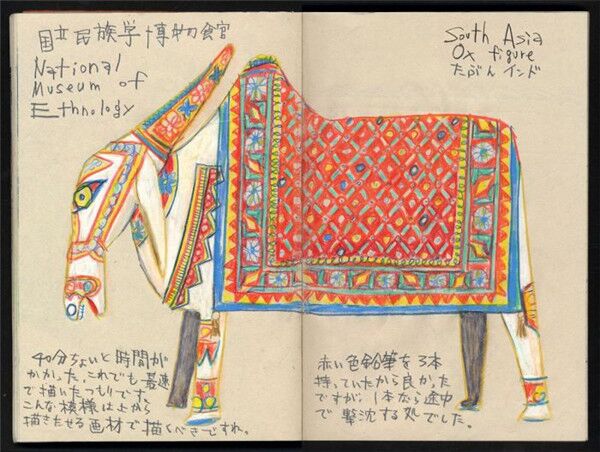 国立民族学博物館
National
Museum of
Ethnology
South Asia
Ox figure
たぶんインド
40分ちょいと時間が
かかった。これでも最速
で描いたつもりです。
こんな模様は上から
描きたせる画材で描くべきですね。
赤い色鉛筆を3本
持っていたから良かった
ですが、1本なら途中
で撃沈する処でした。